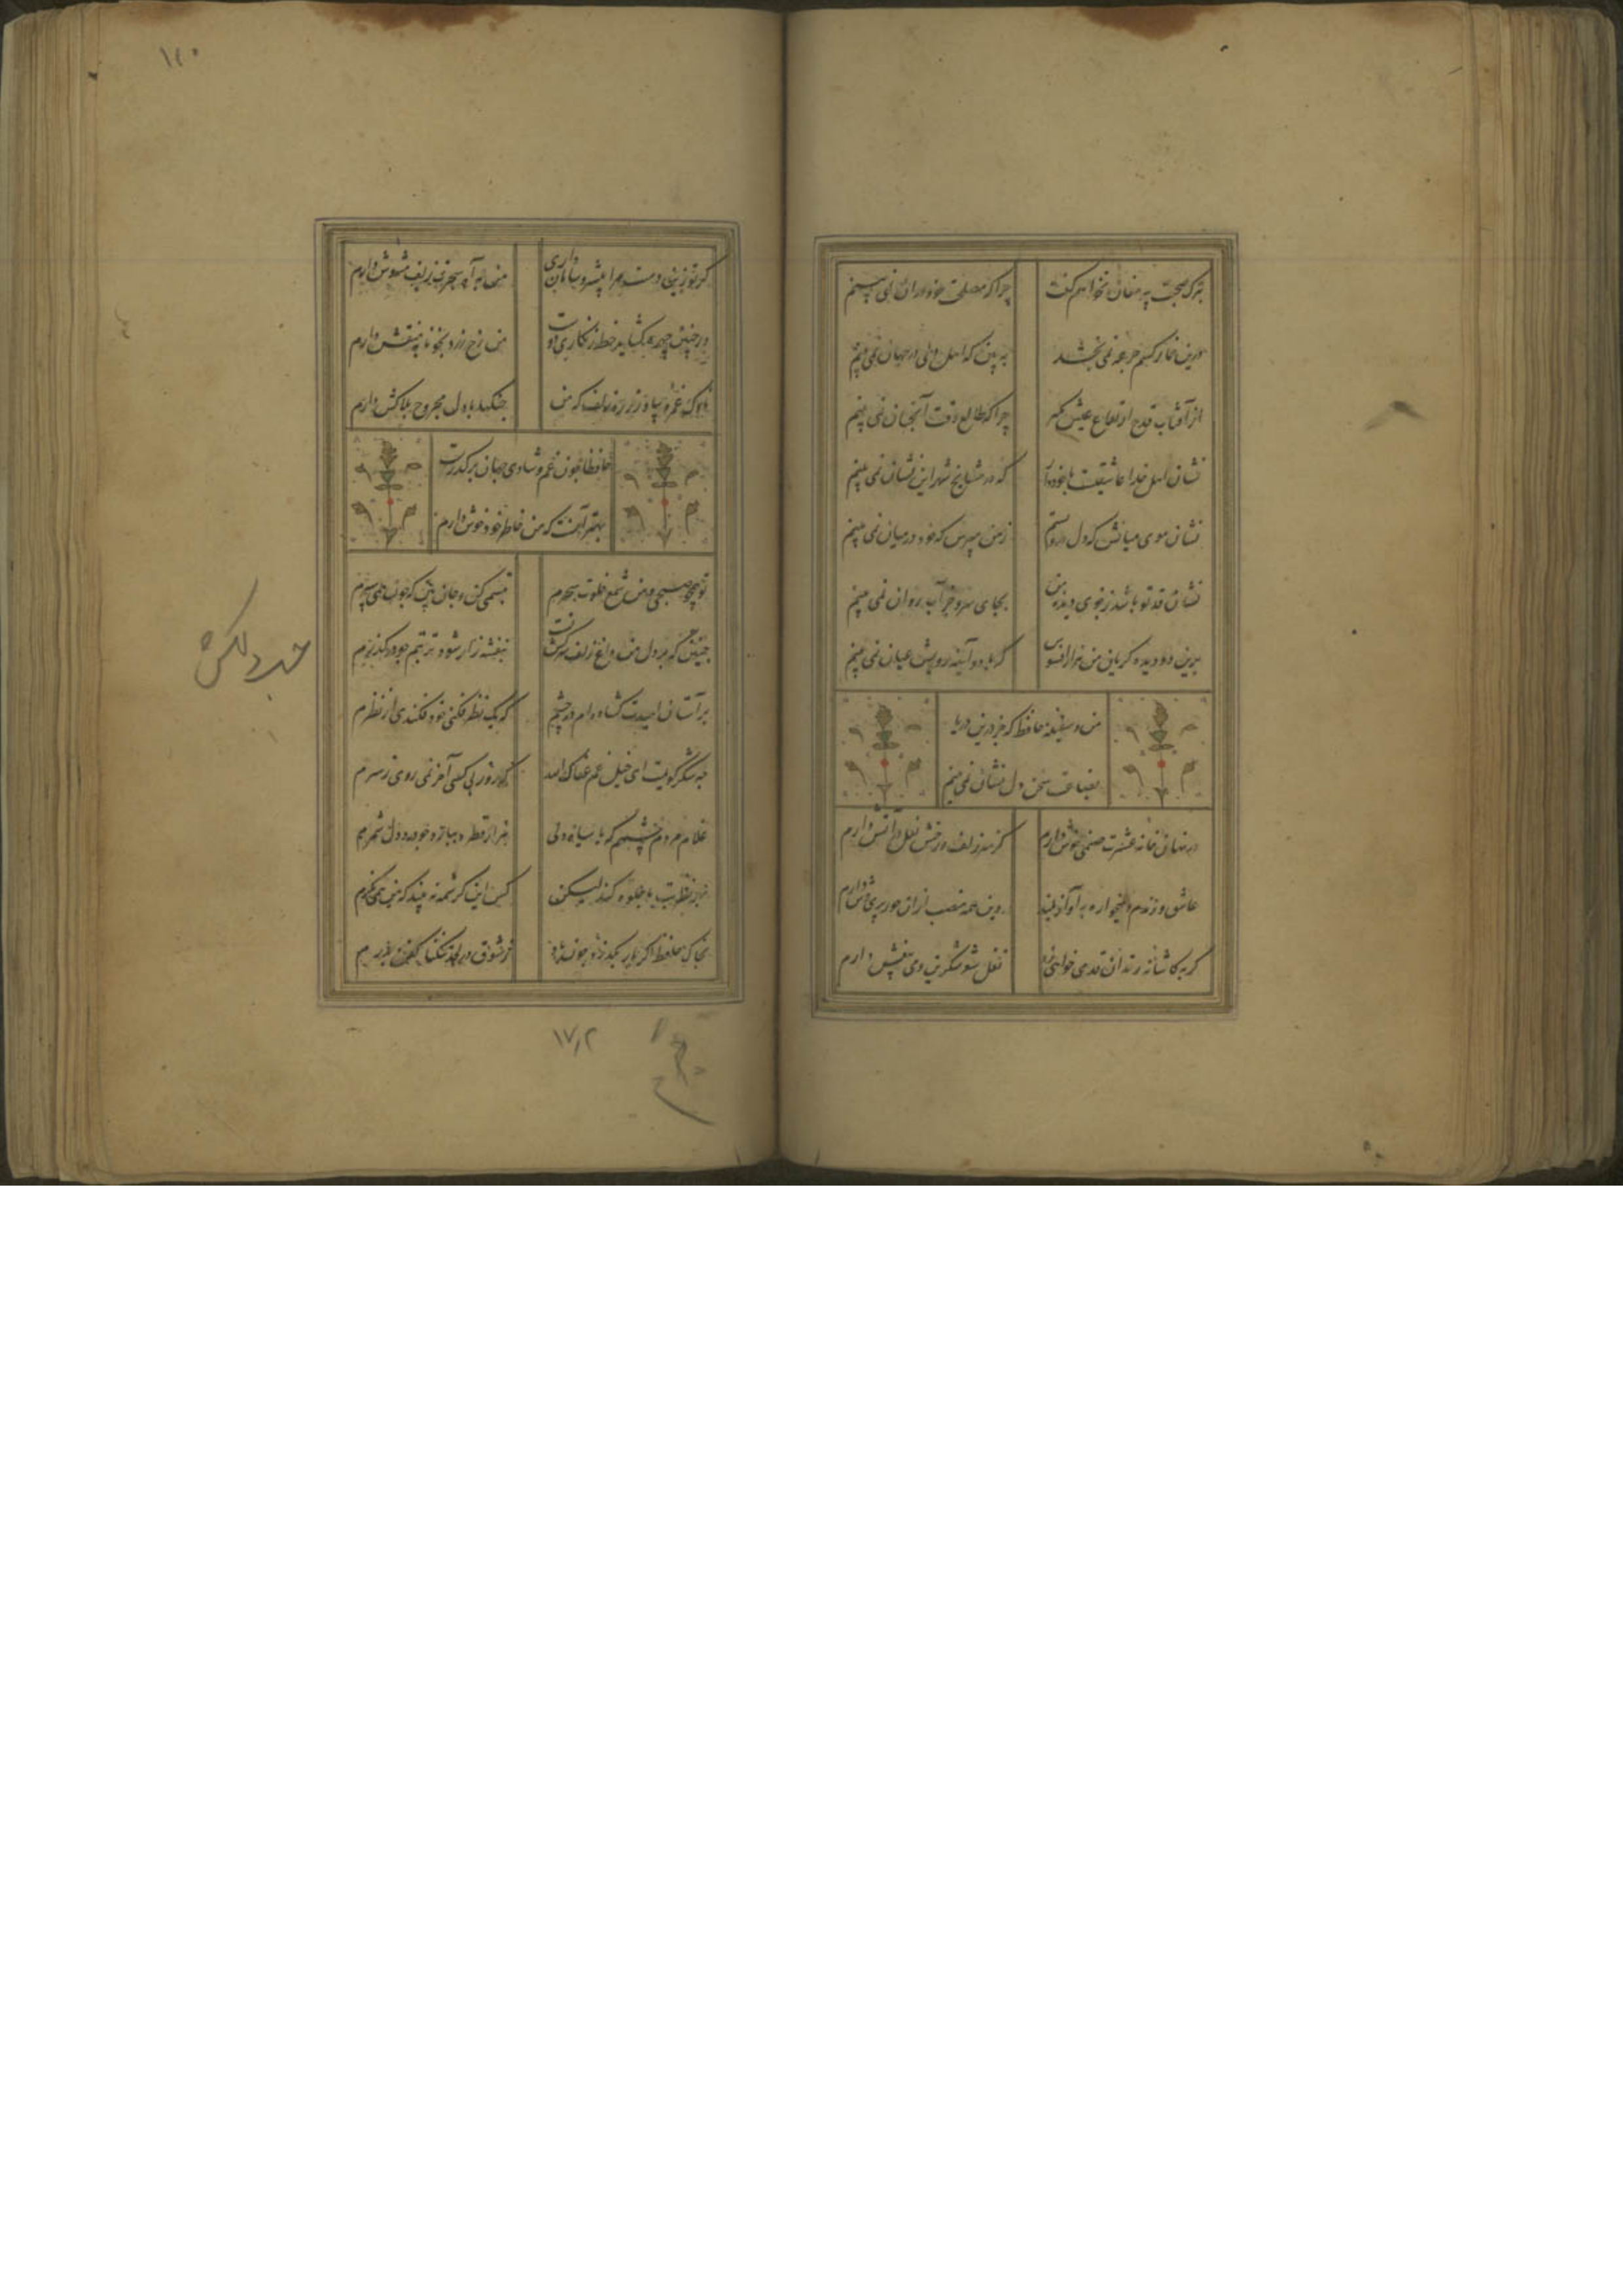 بترک صحبت پیر مغان نخواهم گفت
چرا که مصلحت خود در آن نمی بینم
درین خمار کسم جرعه نمی بخشد
ببین که اهل دلی در جهان نمی بینم
از آفتاب قدح ارتفاع عیش بگیر
چرا که طالع وقت آنچنان نمی بینم
نشان اهل خدا عاشقیست با خود دار
که در مشایخ شهر این نشان نمی بینم
نشان موی میانش که دل درو بستم
ز من مپرس که خود در میان نمی بینم
نشان قد تو باشد ز جوی دیده من
بجای سرو جز آب روان نمی بینم
برین دو دیده گریان من هزار افسوس
که با دو آینه رویش عیان نمی بینم
من و سفینه حافظ که جز درین دریا
بضاعت سخن دل نشان نمی بینم
در نهان خانه عشرت صنمی خوش دارم
کز سر زلف و رخش نعل در آتش دارم
عاشق و رندم و میخواره به آواز بلند
وین همه منصب از آن حور پری وش دارم
گر به کاشانه رندان قدمی خواهی زد
نقل شعر شکرین و می بیغش دارم
گر تو زین دست مرا بی سر و سامان داری
من به آه سحرت زلف مشوش دارم
ور چنین چهره گشاید خط زنگاری دوست
من رخ زرد بخونابه منقش دارم
ناوک غمزه بیار و زره زلف که من
جنگها با دل مجروح بلاکش دارم
حافظا چون غم و شادی جهان در گذرست
بهتر آنست که من خاطر خود خوش دارم
تو همچو صبحی و من شمع خلوت سحرم
تبسمی کن و جان بین که چون همی سپرم
چنین که در دل من داغ زلف سرکش تست
بنفشه زار شود تربتم چو درگذرم
بر آستان امیدت گشاده ام در چشم
که یک نظر فکنی خود فکندی از نظرم
چه شکر گویمت ای خیل غم عفاک الله
که روز بی کسی آخر نمی روی ز سرم
غلام مردم چشمم که با سیاه دلی
هزار قطره ببارد چو درد دل شمرم
بهر نظر بت ما جلوه میکند لیکن
کس این کرشمه نبیند که من همی نگرم
بخاک حافظ اگر یار بگذرد چون باد
ز شوق در دل آن تنگنا کفن بدرم
۱۷۲